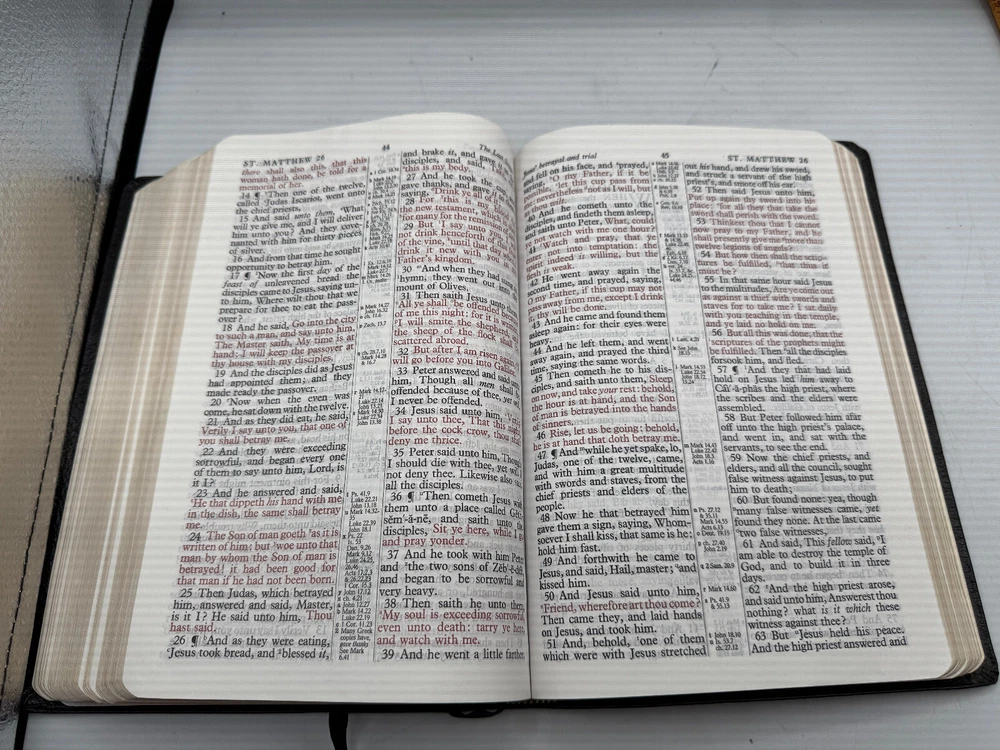 ST. MATTHEW 26
44
there shall also this, that this
woman hath done, be told for a
memorial of her.
14 ¶ Then one of the twelve,
called Judas Iscariot, went unto
the chief priests,
15 And said unto them, What
will ye give me, and I will deliver
him unto you? And they cove-
nanted with him for thirty pieces
of silver.
16 And from that time he sought
opportunity to betray him.
17 ¶ Now the first day of the
feast of unleavened bread the
disciples came to Jesus, saying un-
to him, Where wilt thou that we
prepare for thee to eat the pass-
over?
18 And he said, Go into the city
to such a man, and say unto him,
The Master saith, My time is at
hand; I will keep the passover at
thy house with my disciples.
19 And the disciples did as Jesus
had appointed them; and they
made ready the passover.
20 Now when the even was
come, he sat down with the twelve.
21 And as they did eat, he said,
Verily I say unto you, that one of
you shall betray me.
22 And they were exceeding
sorrowful, and began every one
of them to say unto him, Lord, is
it I?
23 And he answered and said,
He that dippeth his hand with me
in the dish, the same shall betray
me.
24 The Son of man goeth as it is
written of him: but woe unto that
man by whom the Son of man is
betrayed! it had been good for
that man if he had not been born.
25 Then Judas, which betrayed
him, answered and said, Master,
is it I? He said unto him, Thou
hast said.
26 ¶ And as they were eating,
Jesus took bread, and blessed it,
and brake it, and gave
disciples, and said,
this is my body.
27 And he took the cup,
gave thanks, and gave
saying, Drink ye all
28 For this is my
the new testament, which
for many for the remission
29 But I say unto
not drink henceforth of
of the vine, until that
drink it new with you
Father's kingdom.
30 And when they had
hymn, they went out into
mount of Olives.
31 Then saith Jesus unto
All ye shall be offended
of me this night: for it is
I will smite the shepherd,
the sheep of the flock shall
scattered abroad.
32 But after I am risen again,
will go before you into Galilee.
33 Peter answered and said
him, Though all men shall
offended because of thee, yet
I never be offended.
34 Jesus said unto him,
I say unto thee, That this
before the cock crow, thou
deny me thrice.
35 Peter said unto him, Though
I should die with thee, yet will
not deny thee. Likewise also
all the disciples.
36 ¶ Then cometh Jesus with
them unto a place called
sĕm'-ă-nē, and saith unto the
disciples, Sit ye here, while I go
and pray yonder.
37 And he took with him Peter
and the two sons of Zĕb'-ĕ-dēē,
and began to be sorrowful and
very heavy.
38 Then saith he unto them,
My soul is exceeding sorrowful,
even unto death: tarry ye here,
and watch with me.
39 And he went a little farther,
betrayal and trial
45
ST. MATTHEW 26
and fell on his face, and prayed,
saying, O my Father, if it be
possible, let this cup pass from
me: nevertheless not as I will, but
40 And he cometh unto the
disciples, and findeth them asleep,
and saith unto Peter, What, could
ye not watch with me one hour?
41 Watch and pray, that ye
enter not into temptation: the
spirit indeed is willing, but the
flesh is weak.
42 He went away again the
second time, and prayed, saying,
O my Father, if this cup may not
pass away from me, except I drink
it, thy will be done.
43 And he came and found them
asleep again: for their eyes were
heavy.
44 And he left them, and went
away again, and prayed the third
time, saying the same words.
45 Then cometh he to his dis-
ciples, and saith unto them, Sleep
on now, and take your rest: behold,
the hour is at hand, and the Son
of man is betrayed into the hands
of sinners.
46 Rise, let us be going: behold,
he is at hand that doth betray me.
47 ¶ And while he yet spake, lo,
Judas, one of the twelve, came,
and with him a great multitude
with swords and staves, from the
chief priests and elders of the
people.
48 Now he that betrayed him
gave them a sign, saying, Whom-
soever I shall kiss, that same is he:
hold him fast.
49 And forthwith he came to
Jesus, and said, Hail, master; and
kissed him.
50 And Jesus said unto him,
Friend, wherefore art thou come?
Then came they, and laid hands
on Jesus, and took him.
51 And, behold, one of them
which were with Jesus stretched
out his hand, and drew his sword,
and struck a servant of the high
priest's, and smote off his ear.
52 Then said Jesus unto him,
Put up again thy sword into his
place: for all they that take the
sword shall perish with the sword.
53 Thinkest thou that I cannot
now pray to my Father, and he
shall presently give me more than
twelve legions of angels?
54 But how then shall the scrip-
tures be fulfilled, that thus it
must be?
55 In that same hour said Jesus
to the multitudes, Are ye come out
as against a thief with swords and
staves for to take me? I sat daily
with you teaching in the temple,
and ye laid no hold on me.
56 But all this was done, that the
scriptures of the prophets might
be fulfilled. Then all the disciples
forsook him, and fled.
57 ¶ And they that had laid
hold on Jesus led him away to
Cāi'-ă-phăs the high priest, where
the scribes and the elders were
assembled.
58 But Peter followed him afar
off unto the high priest's palace,
and went in, and sat with the
servants, to see the end.
59 Now the chief priests, and
elders, and all the council, sought
false witness against Jesus, to put
him to death;
60 But found none: yea, though
many false witnesses came, yet
found they none. At the last came
two false witnesses,
61 And said, This fellow said, I
am able to destroy the temple of
God, and to build it in three
days.
62 And the high priest arose,
and said unto him, Answerest thou
nothing? what is it which these
witness against thee?
63 But Jesus held his peace.
And the high priest answered and